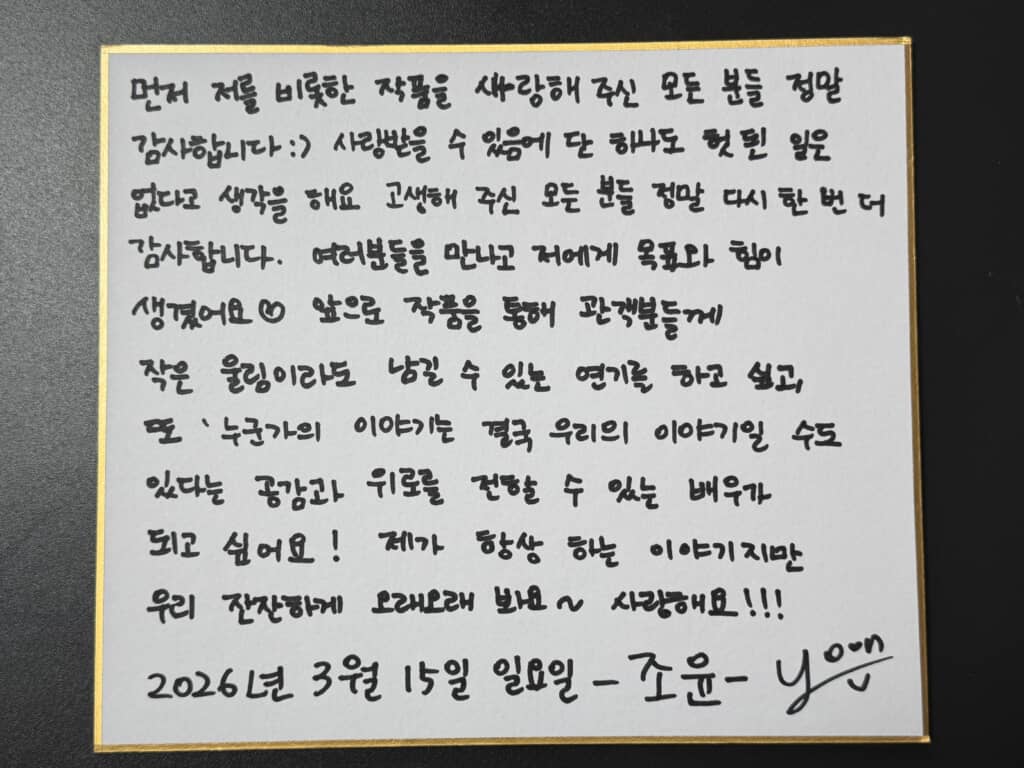 먼저 저를 비롯한 작품을 사랑해 주신 모든 분들 정말
감사합니다 :) 사랑받을 수 있음에 단 하나도 헛 된 일은
없다고 생각을 해요 고생해 주신 모든 분들 정말 다시 한 번 더
감사합니다. 여러분들을 만나고 저에게 목표와 힘이
생겼어요♡ 앞으로 작품을 통해 관객분들께
작은 울림이라도 남길 수 있는 연기를 하고 싶고,
또 '누군가의 이야기는 결국 우리의 이야기일 수도
있다는 공감과 위로를 전할 수 있는 배우가
되고 싶어요! 제가 항상 하는 이야기지만
우리 잔잔하게 오래오래 봐요~ 사랑해요!!!
2026년 3월 15일 일요일 - 조윤 - yoon